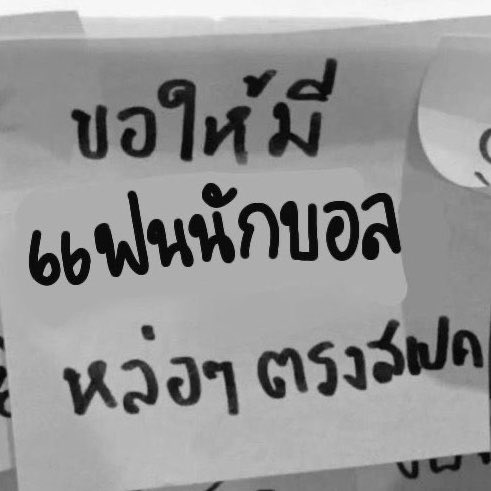 ขอให้มี
แฟนนักบอล
หล่อๆ ตรงสเปค